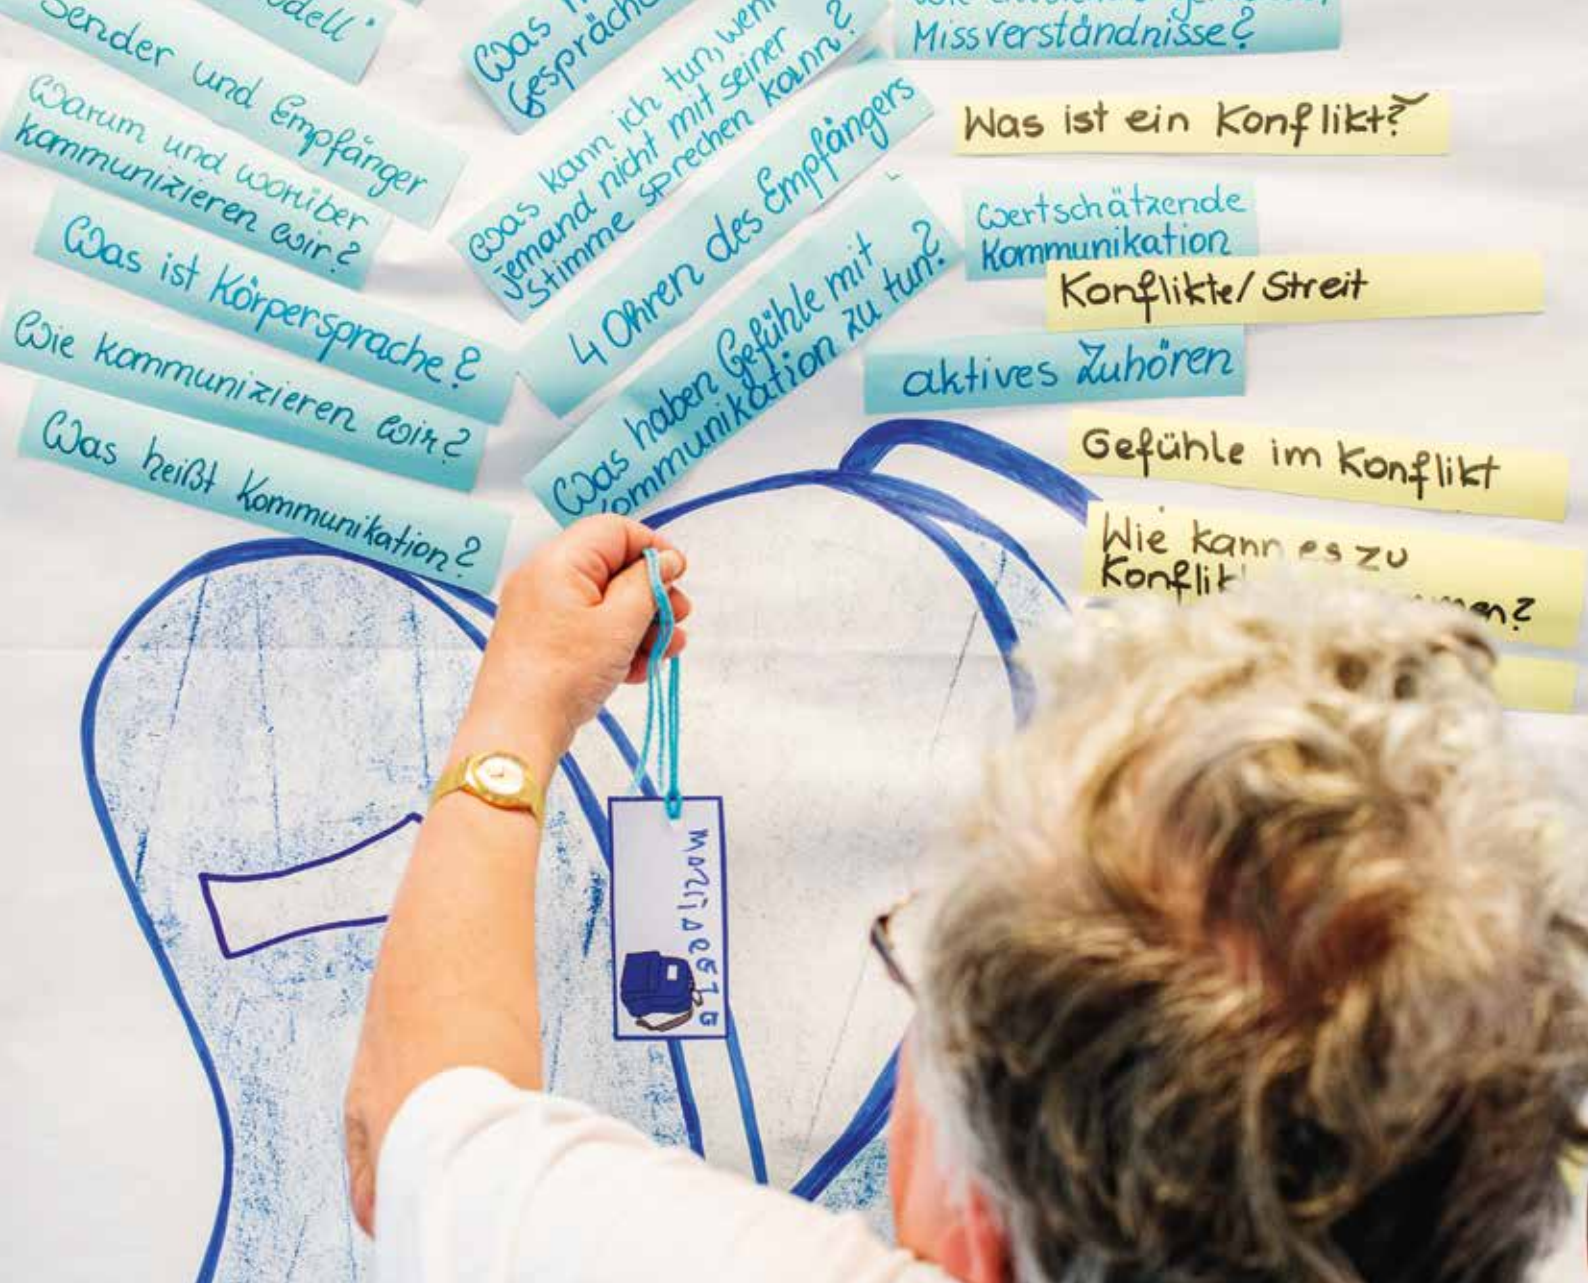 odell"
Sender und Empfänger
Warum und worüber
kommunizieren wir?
Was ist Körpersprache?
Wie kommunizieren wir?
Was heißt Kommunikation?
Was
Gespräche
Was kann ich tun, wenn
jemand nicht mit seiner
Stimme sprechen kann?
4 Ohren des Empfängers
Was haben Gefühle mit
Kommunikation zu tun?
Missverständnisse?
Was ist ein Konflikt?
Wertschätzende
Kommunikation
Konflikte/Streit
aktives Zuhören
Gefühle im Konflikt
Wie kann es zu
Konflik
men?